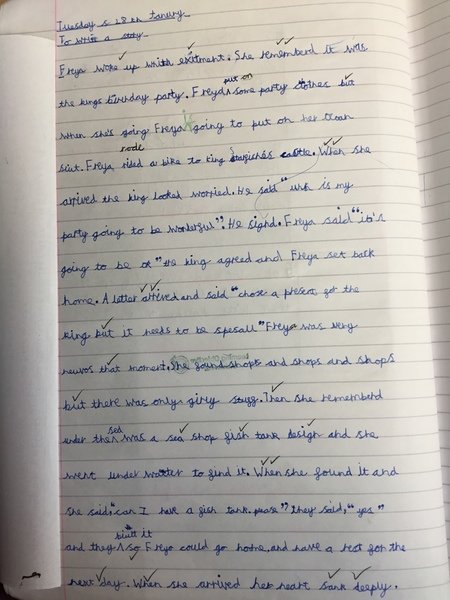 Tuesday 28th January
To write a story.
Freya woke up whith exitment. She rememberd it was
put on
the kings birthday party. Freya some party clothes but
when she's going Freya going to put on her
rode
siut. Freya rided a bike to king castle. When she
arrived the king looked worried. He said "uhh is my
party going to be wonderful". He sighd. Freya said "it's
going to be ok" the king agreed and Freya set back
home. A latter arrived and said "chose a present for the
king but it needs to be spesall" Freya was very
neuvos that moment. She found shops and shops and shops
but there was only girly stuff. Then she rememberd
sea
under the was a sea shop fish tank design and she
went under watter to find it. When she found it and
she said, "can I have a fish tank please" they said, "yes"
biult it
and they so Freya could go home, and have a rest for the
next day. When she arrived her heart sank deeply.